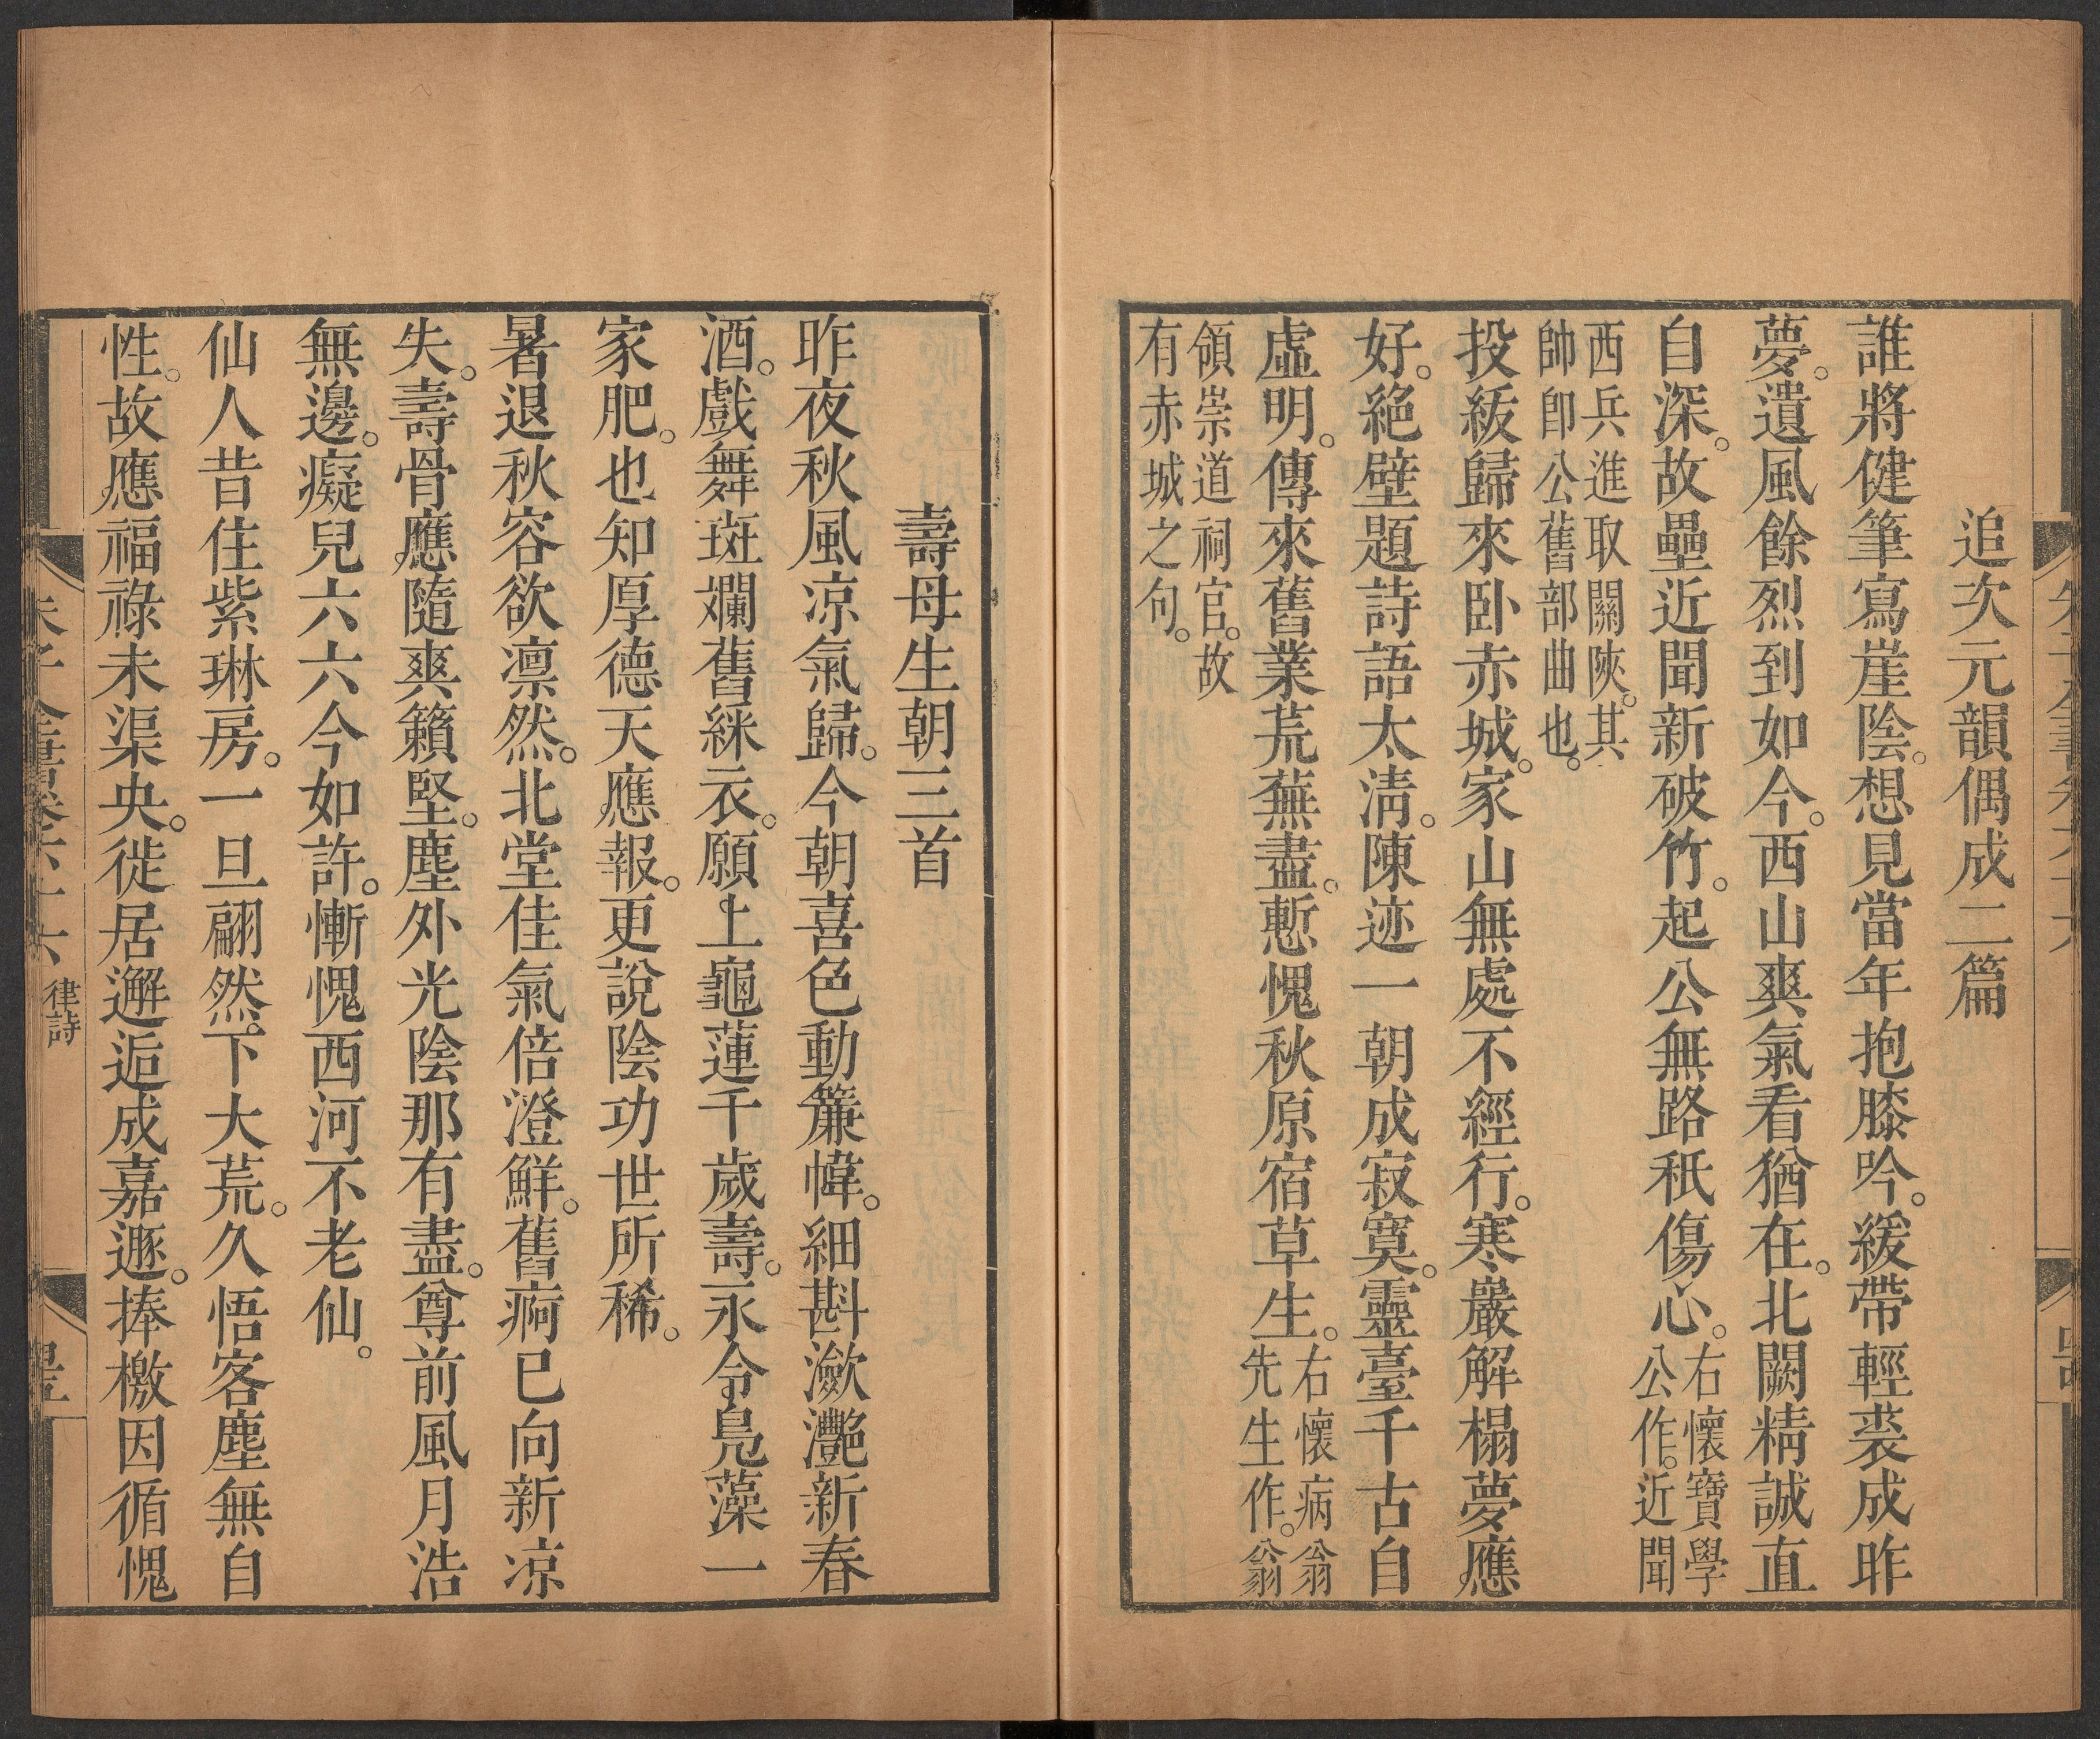 追次元韻偶成二篇
誰將健筆寫崖陰。想見當年抱膝吟。緩帶輕裘成昨
夢。遺風餘烈到如今。西山爽氣看猶在。北闕精誠直
自深。故壘近聞新破竹。起公無路秖傷心。右懷寶學公作。近聞
西兵進取關陝。其帥卽公舊部曲也。
投紱歸來卧赤城。家山無處不經行。寒巖解榻夢應
好。絕壁題詩語太淸。陳迹一朝成寂寞。靈臺千古自
虛明。傳來舊業荒蕪盡。慙愧秋原宿草生。右懷病翁先生作。翁
領崇道祠官。故有赤城之句。
壽母生朝三首
昨夜秋風凉氣歸。今朝喜色動簾幃。細斟瀲灩新春
酒。戲舞斑斕舊綵衣。願上龜蓮千歲壽。永令鳧藻一
家肥。也知厚德天應報。更說陰功世所稀。
暑退秋容欲凛然。北堂佳氣倍澄鮮。舊痾已向新凉
失。壽骨應隨爽籟堅。塵外光陰那有盡。尊前風月浩
無邊。癡兒六六今如許。慚愧西河不老仙。
仙人昔住紫琳房。一旦翩然下大荒。久悟客塵無自
性。故應福祿未渠央。徙居邂逅成嘉遯。捧檄因循愧
律詩